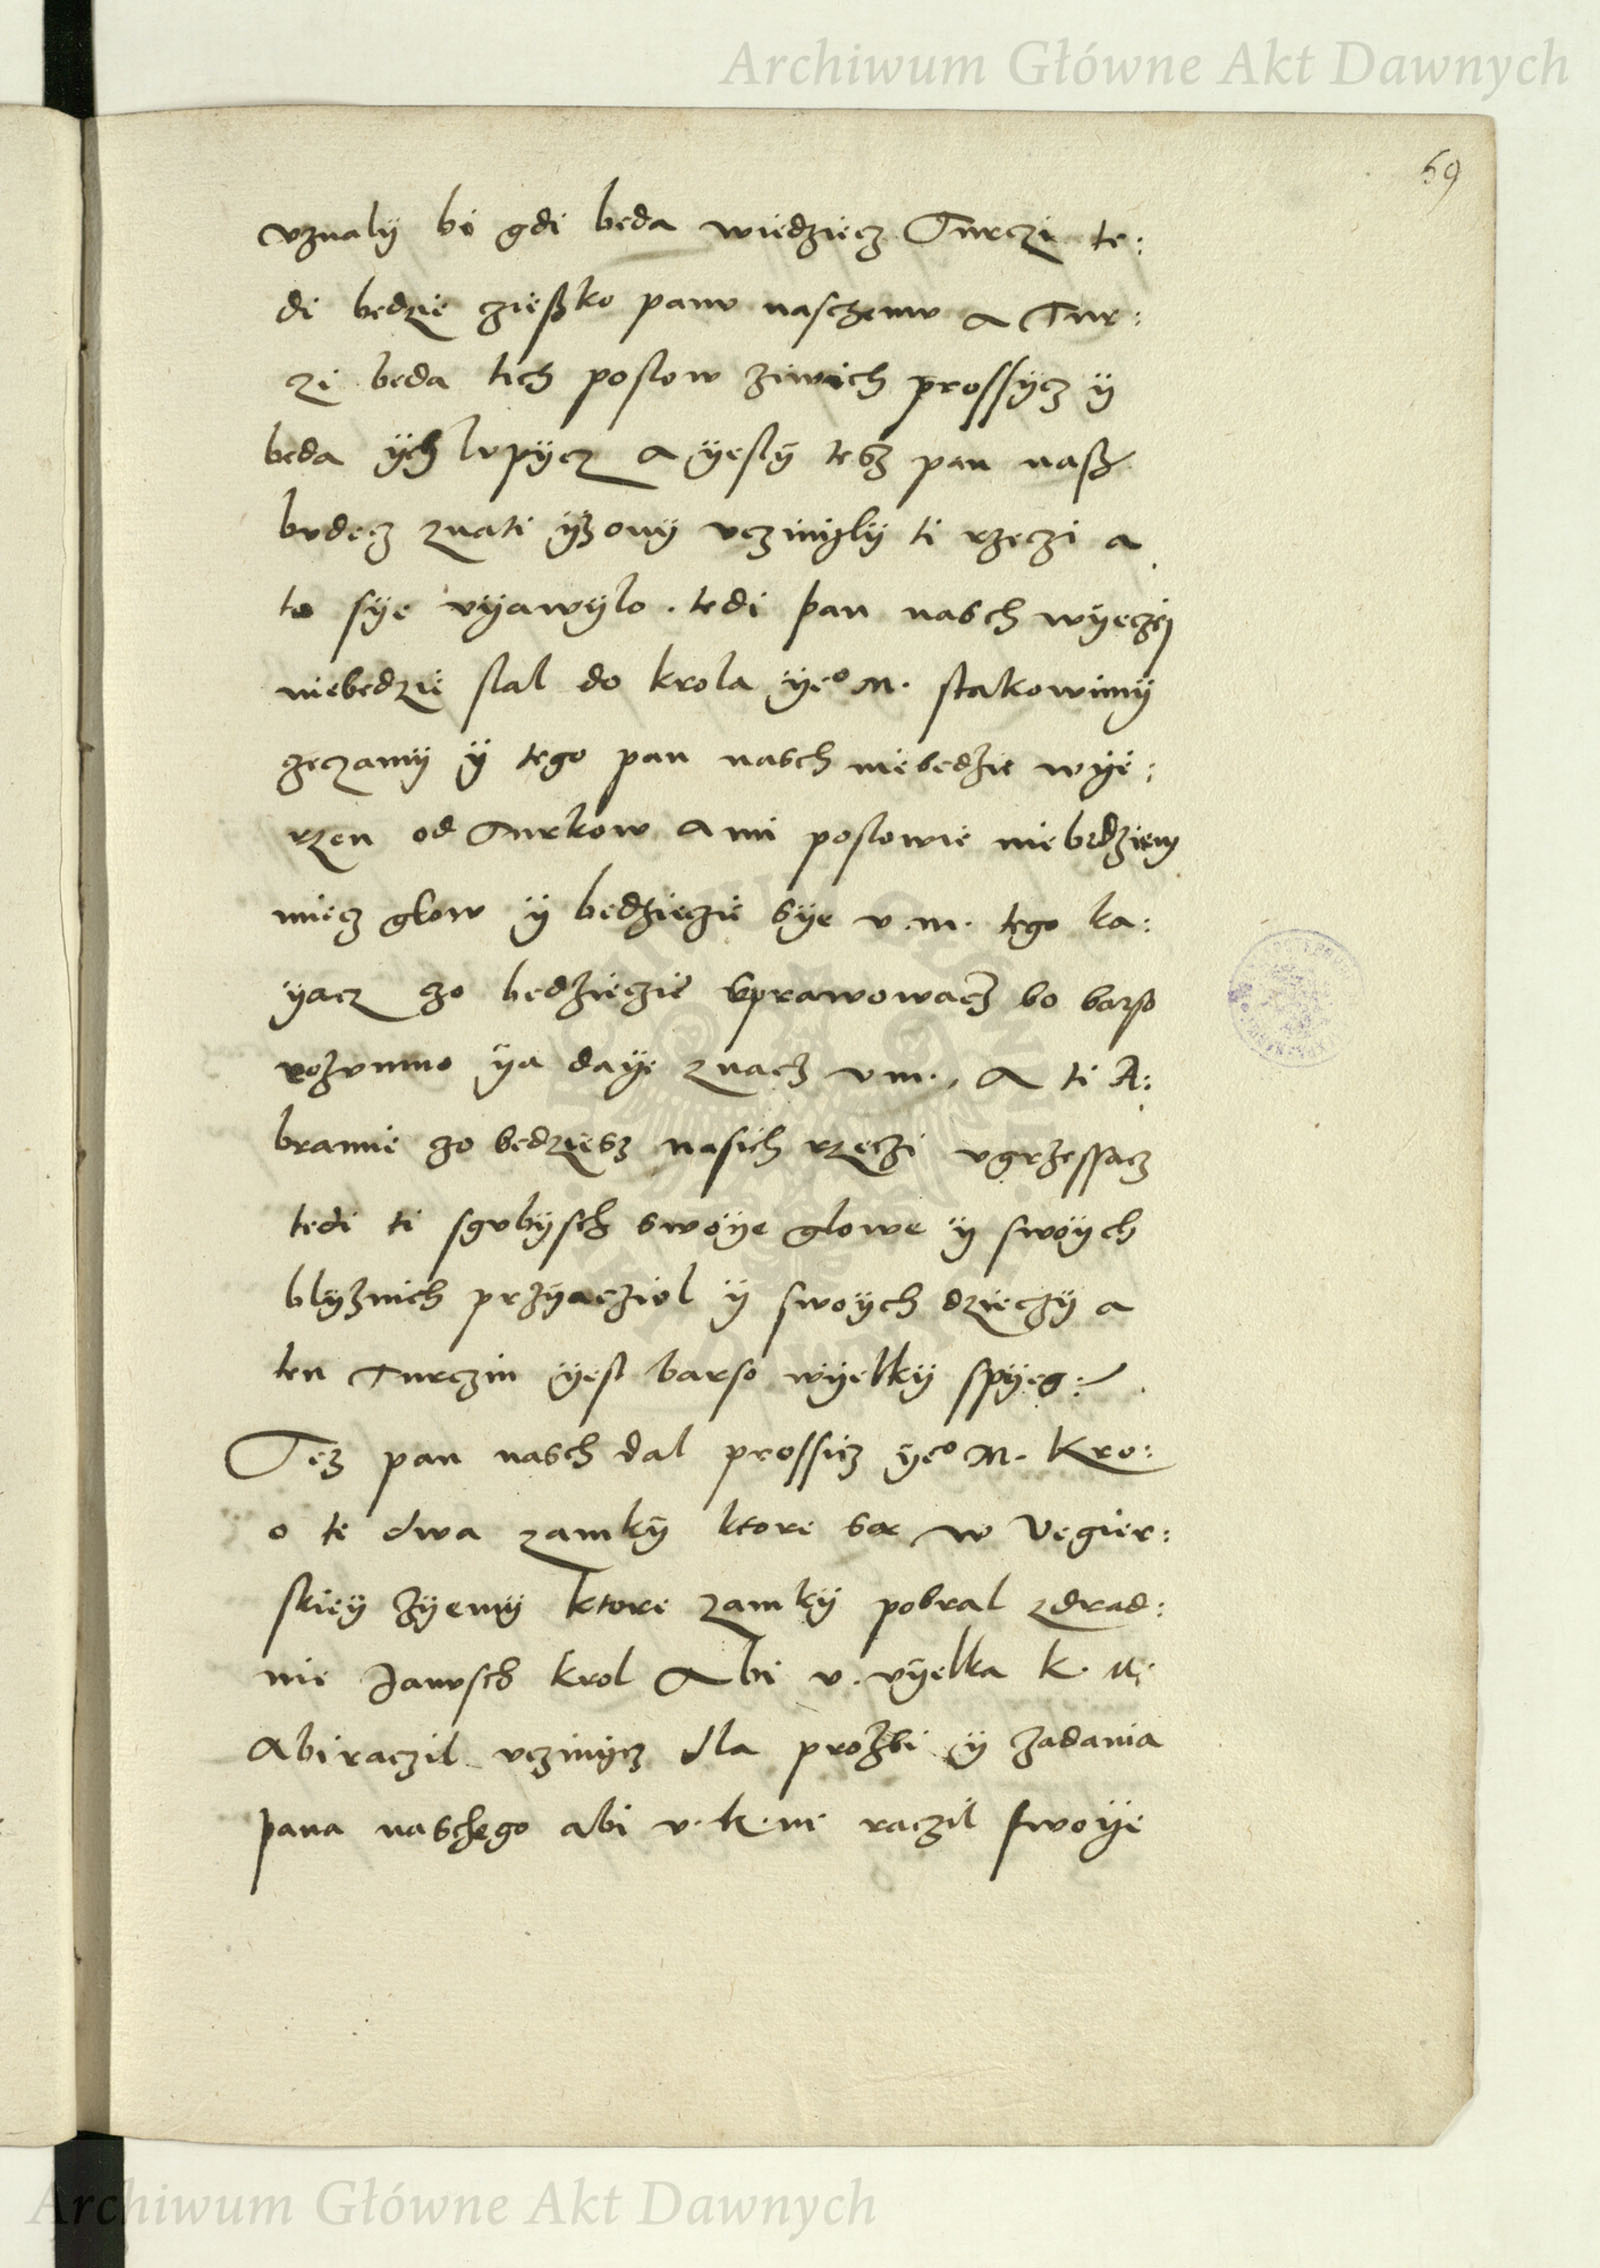 Archiwum Główne Akt Dawnych
69
vznalÿ bi gdi beda wiedziecz Turczi te:
di bedzie zießko panv naschemv A Tur:
czi beda tich poslow ziwich prossÿcz ÿ
beda ÿch lvpÿcz A ÿeslÿ tesz pan naß
bvdecz znati ÿzonÿ vczinÿlÿ ti rzeczi a
to sÿe vÿawÿlo. tedi pan nasch wÿeczeÿ
niebedzie slal do krola ÿeo M. stakowimÿ
rzeczamÿ ÿ tego pan nasch niebedzie wÿe:
rzen od Turkow A mi poslowie niebedziem
miecz glow ÿ bedziecie sÿe v.m. tego ka:
ÿacz zo bedziecie sprawowacz bo barso
rozvmno ÿa daÿe znacz v m., A ti A:
bramie zo bedziesz nasich rzeczi vgrzessacz
tedi ti sgvbÿsch swoÿe glowe ÿ swoÿch
blÿznich przÿacziol ÿ swoÿch dzieczÿ a
ten Turczin ÿest barso wÿelkÿ spÿeg:
Tez pan nasch dal prossicz ÿeo M. Kro:
o te dwa zamkÿ ktore sa w Vegier:
skieÿ zÿemÿ ktore zamkÿ pobral zdrad:
nie Janvsch krol Abi v. vÿelka K. M:
Abi raczil vczinÿcz dla prozbi ÿ zadania
pana naschego abi v. k. m raczil swoÿe
Archiwum Główne Akt Dawnych